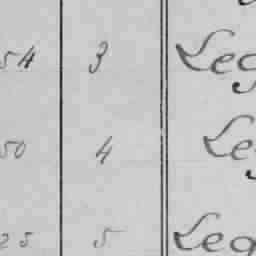 54 3 Leg
50 4 Leg
25 5 Leg